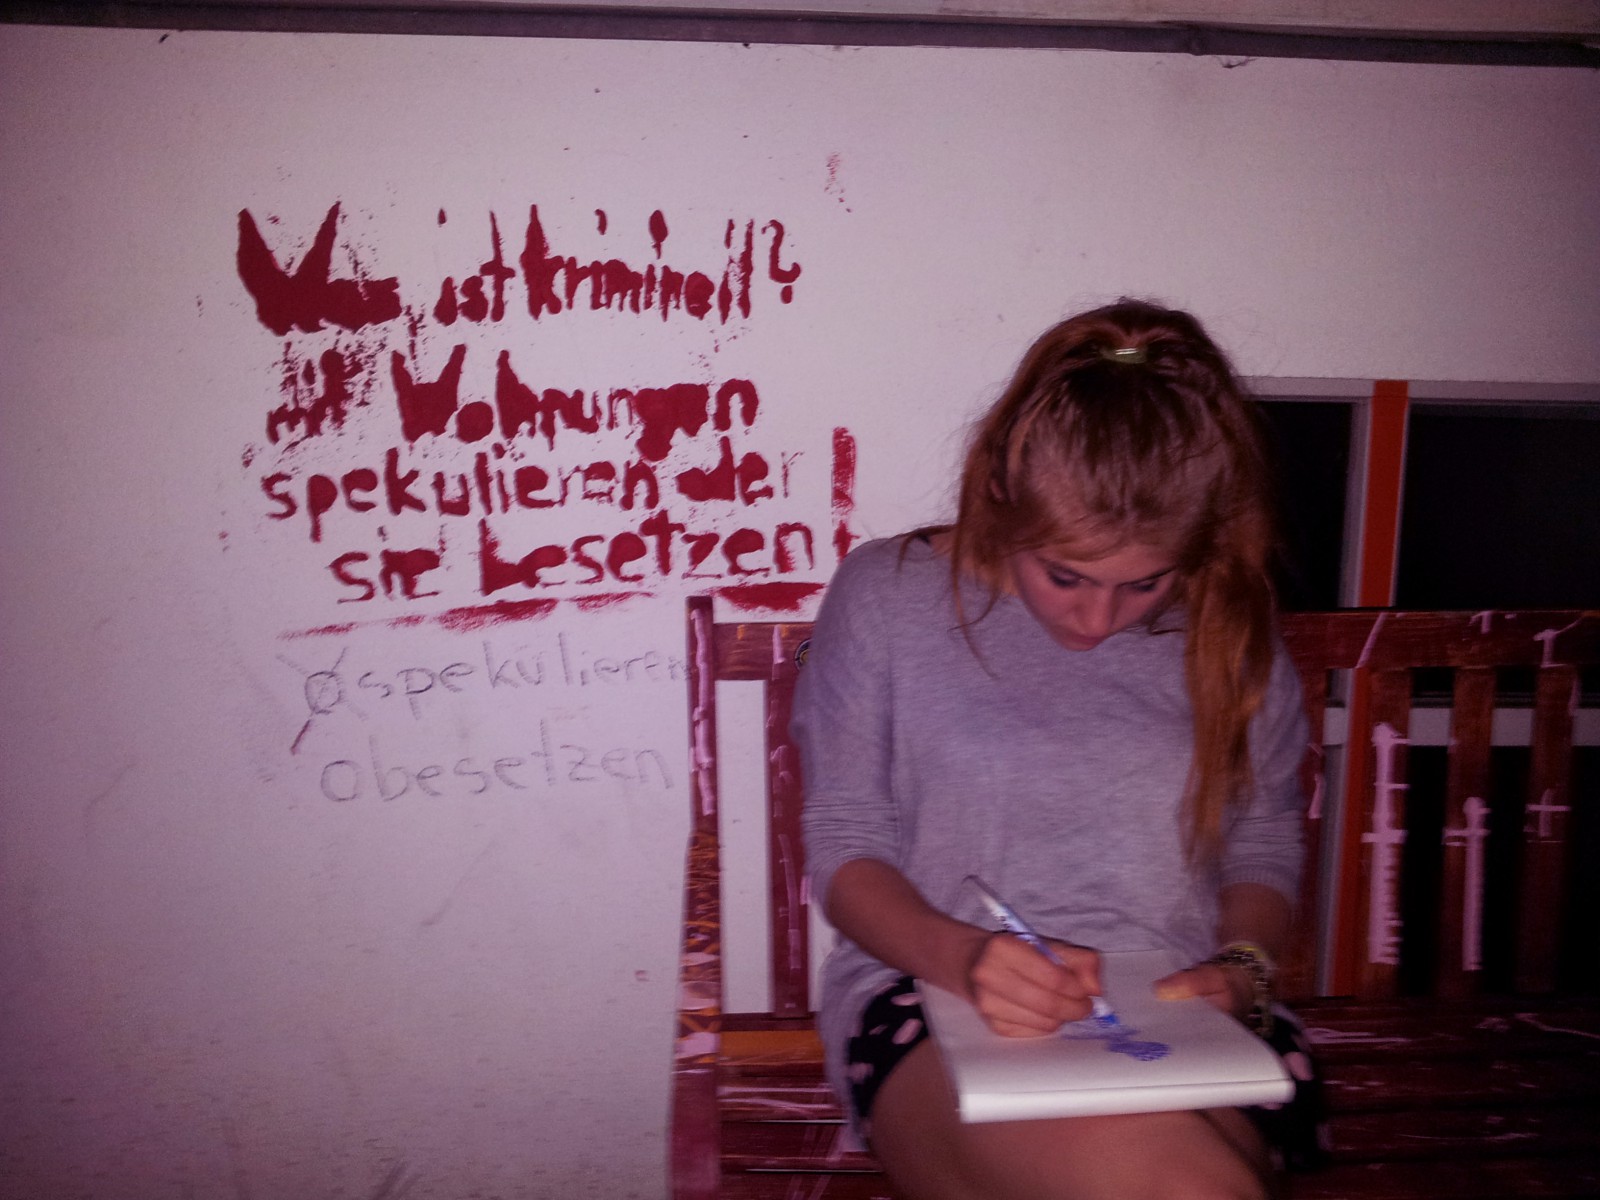 Was ist kriminell?
mit Wohnungen
spekulieren oder
sie besetzen!
O spekulieren
O besetzen